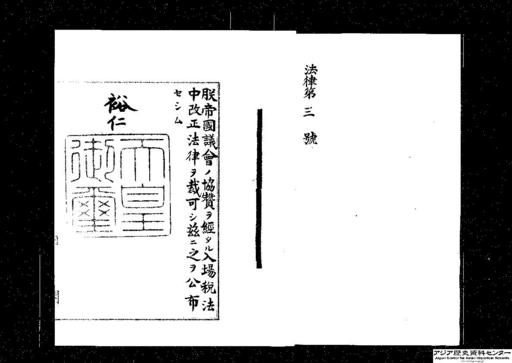 法律第三號
朕帝國議會ノ協贊ヲ經タル入場稅法
中改正法律ヲ裁可シ玆ニ之ヲ公布
セシム
裕仁
天皇
御璽
アジア歴史資料センター
Japan Center for Asian Historical Records